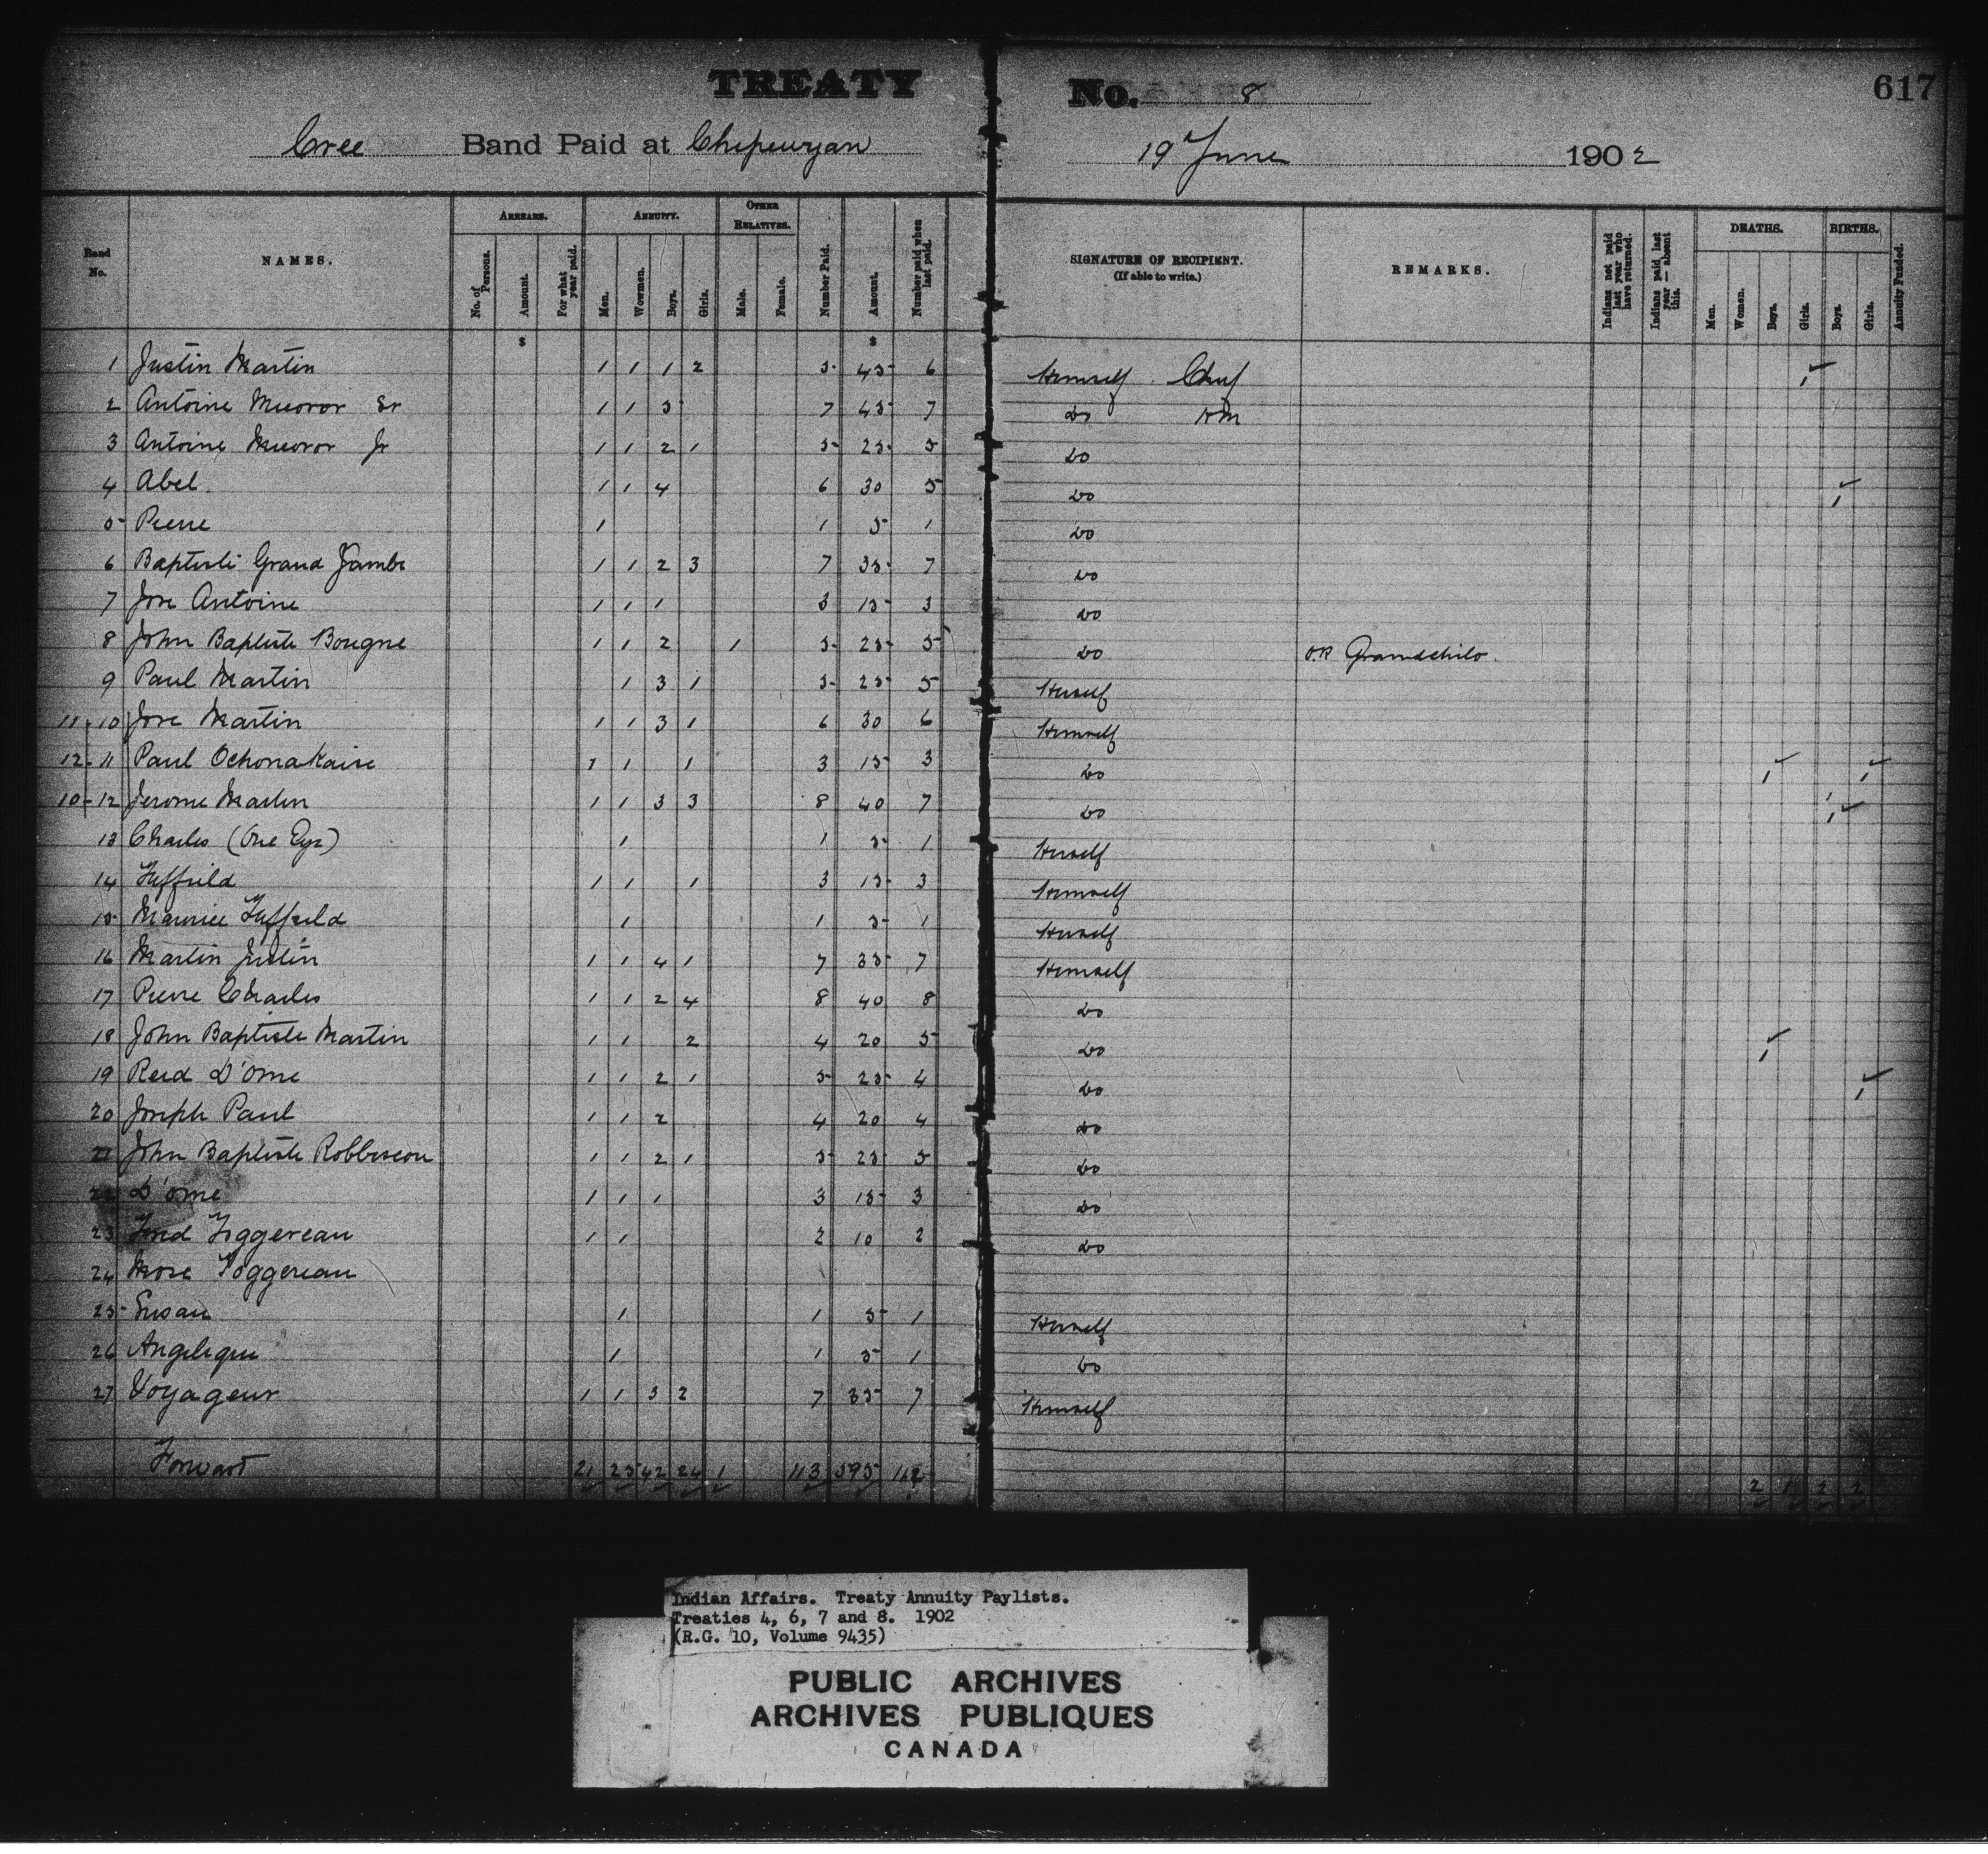 TREATY No. 8 617
Cree Band Paid at Chipewyan 19 June 1902
Band No. NAMES. ARREARS. No. of Persons. Amount. For what year paid. ANNUITY. Men. Wowmen. Boys. Girls. OTHER RELATIVES. Male. Female. Number Paid. Amount. Number paid when last paid. SIGNATURE OF RECIPIENT. (If able to write.) REMARKS. Indians not paid last year who have returned. Indians paid last year — absent this. DEATHS. Men. Women. Boys. Girls. BIRTHS. Boys. Girls. Annuity Funded.
$ $
1 Justin Martin 1 1 1 2 5 45 6 Himself Chief 1
2 Antoine Sr 1 1 5 7 45 7 Do HM
3 Antoine Jr 1 1 2 1 5 25 5 Do
4 Abel 1 1 4 6 30 5 Do 1
5 Pierre 1 1 5 1 Do
6 Baptiste Grand Jambe 1 1 2 3 7 35 7 Do
7 Jose Antoine 1 1 1 3 15 3 Do
8 John Baptiste Bougne 1 1 2 1 5 25 5 Do O.R Grandchild.
9 Paul Martin 1 3 1 5 25 5 Herself
11-10 Jose Martin 1 1 3 1 6 30 6 Himself
12-11 Paul Ochonakaise 1 1 1 3 15 3 Do 1 1
10-12 Jerome Martin 1 1 3 3 8 40 7 Do 1
13 Charles (One Eye) 1 1 5 1 Herself
14 1 1 1 3 15 3 Himself
15 Maurice 1 1 5 1 Herself
16 Martin Justin 1 1 4 1 7 35 7 Himself
17 Pierre Charles 1 1 2 4 8 40 8 Do
18 John Baptiste Martin 1 1 2 4 20 5 Do 1
19 Reid D'Ome 1 1 2 1 5 25 4 Do 1
20 Joseph Paul 1 1 2 4 20 4 Do
21 John Baptiste Robbiscou 1 1 2 1 5 25 5 Do
22 D'ome 1 1 1 3 15 3 Do
23 Figgereau 1 1 2 10 2 Do
24 Mose Foggereau
25 Susan 1 1 5 1 Herself
26 Angelique 1 1 5 1 Do
27 Voyageur 1 1 3 2 7 35 7 Himself
Forward 21 25 42 24 1 113 595 112 2 1 2 2
Indian Affairs. Treaty Annuity Paylists.
Treaties 4, 6, 7 and 8. 1902
(R.G. 10, Volume 9435)
PUBLIC ARCHIVES
ARCHIVES PUBLIQUES
CANADA